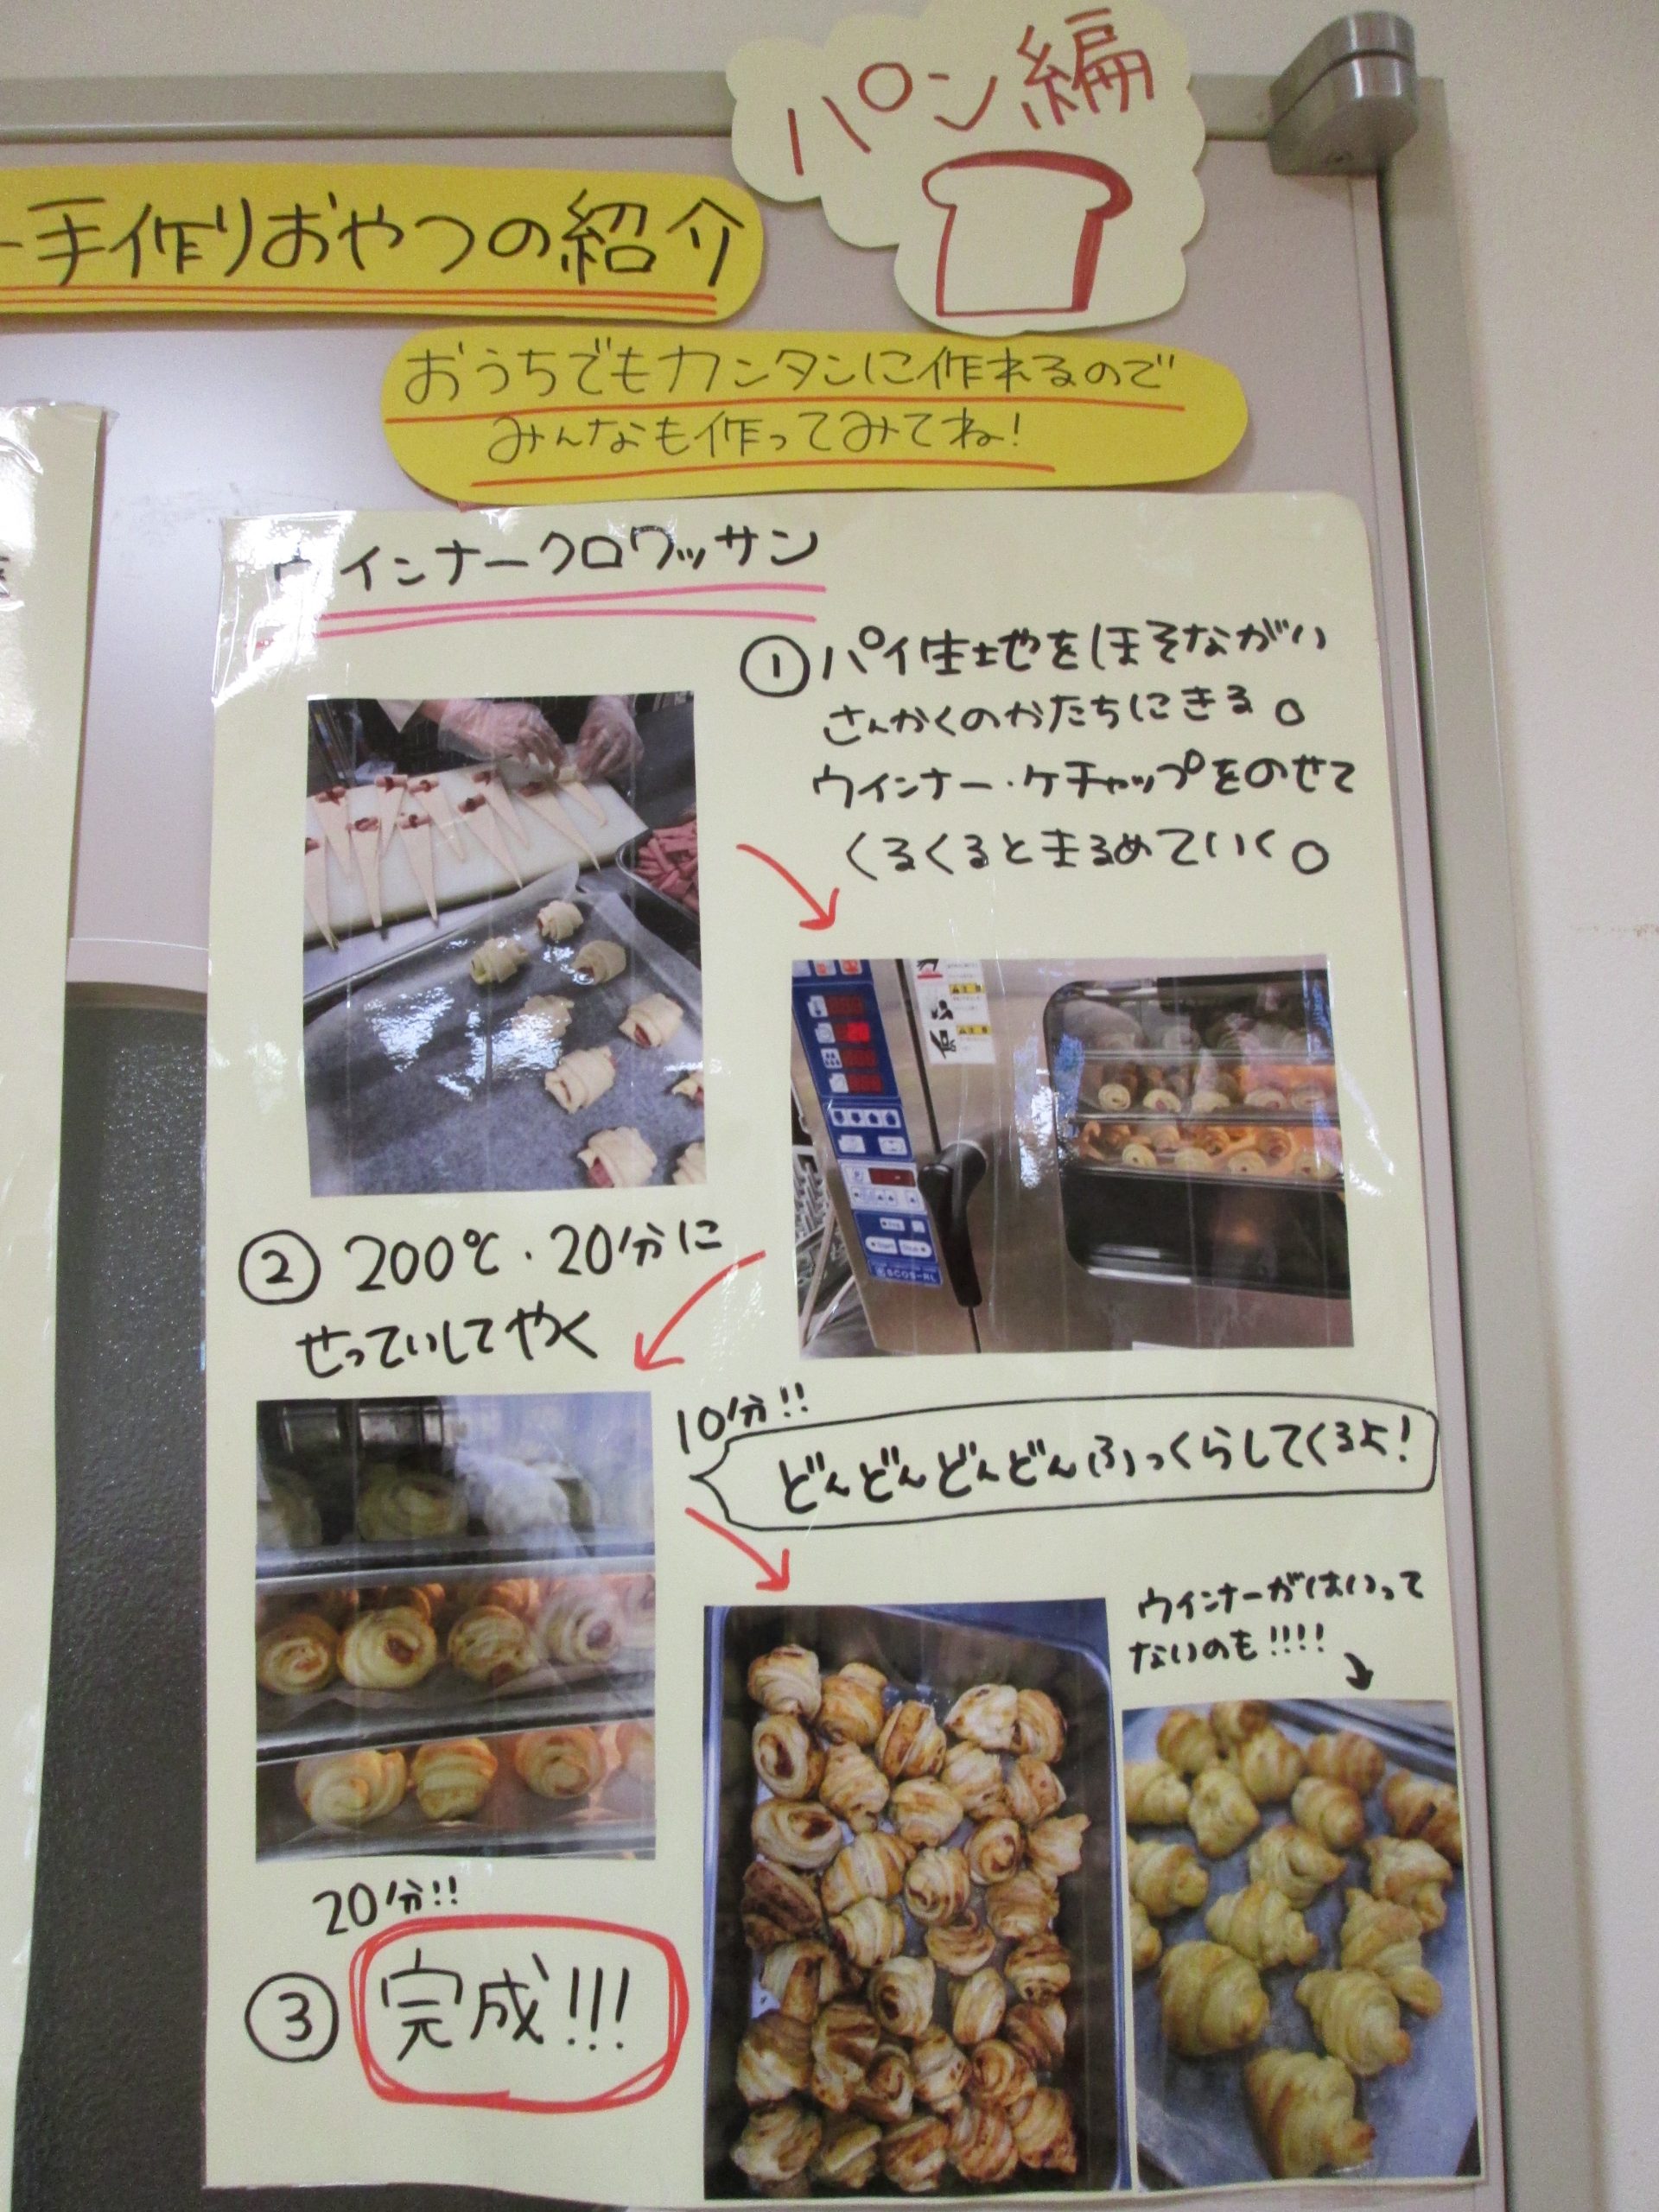 パン編
手作りおやつの紹介
おうちでもカンタンに作れるので
みんなも作ってみてね!
ウインナークロワッサン
① パイ生地をほそながい
さんかくのかたちにきる。
ウインナー・ケチャップをのせて
くるくるとまるめていく。
② 200℃・20分に
せっていしてやく
10分!!
どんどんどんどんふっくらしてくるよ!
ウインナーがはいって
ないのも!!!!
20分!!
③ 完成!!!